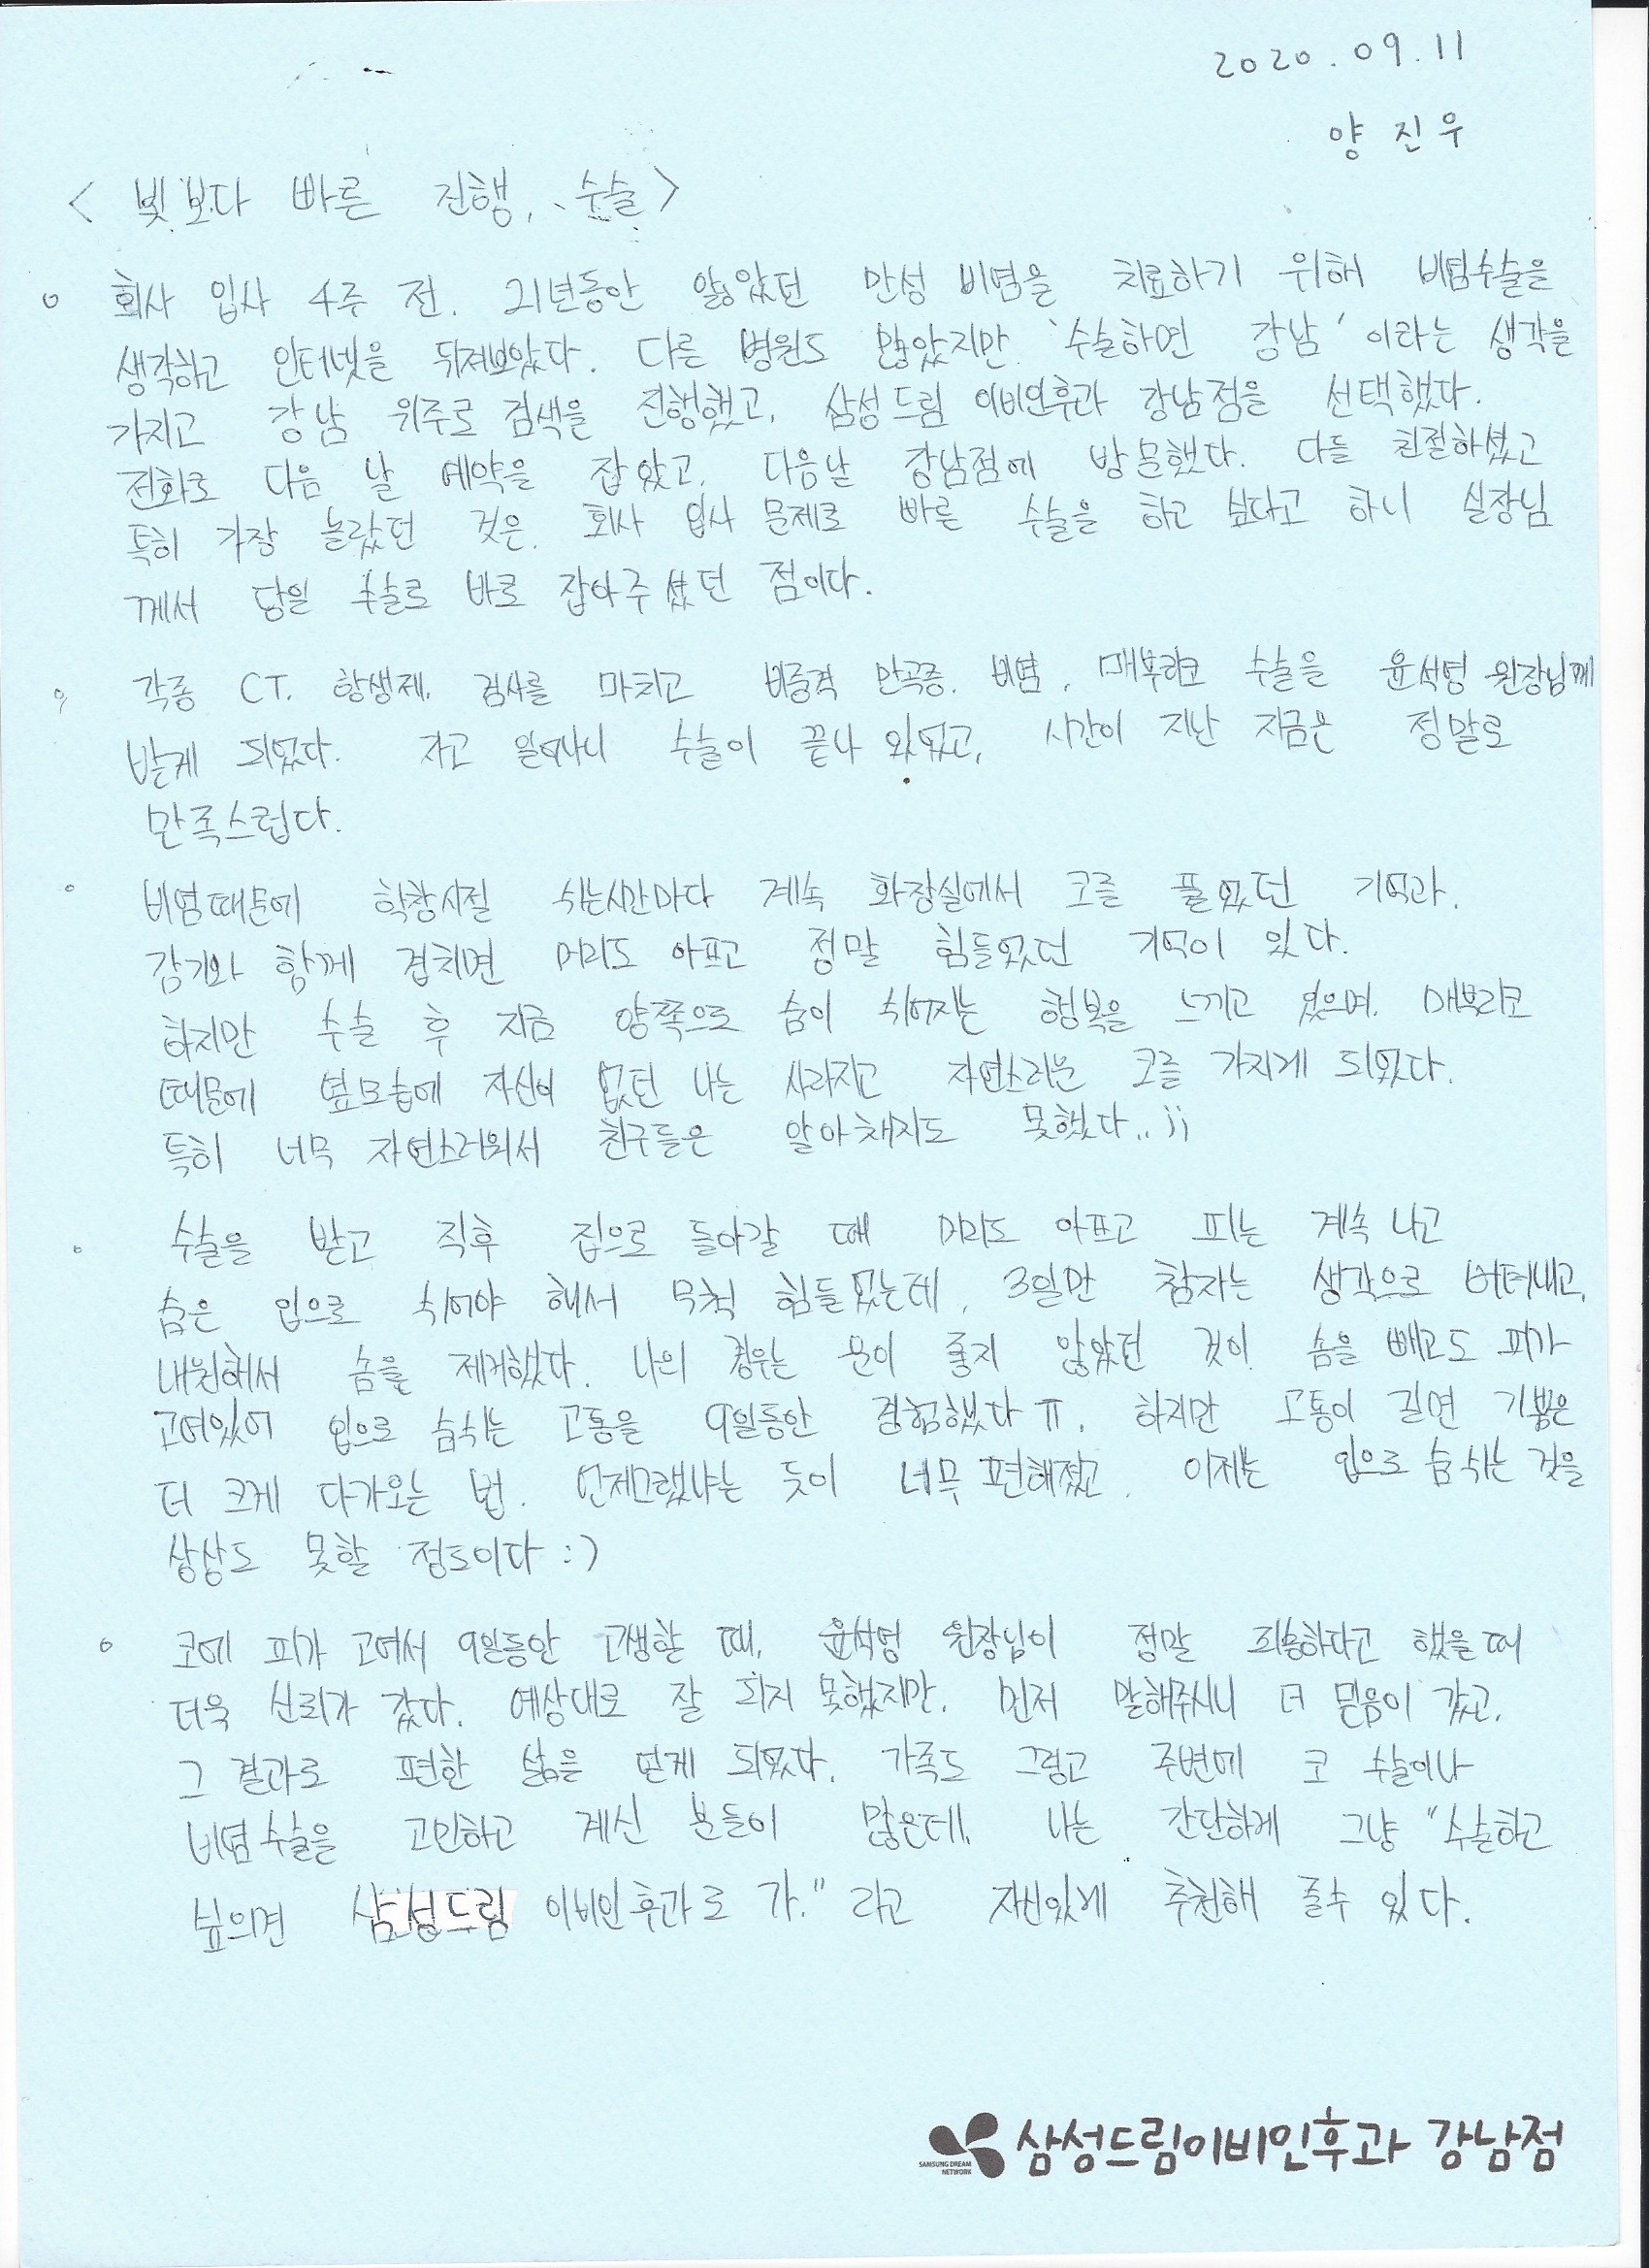 2020.09.11
양진우
< 빛보다 빠른 진행, 수술 >
회사 입사 4주 전. 21년동안 앓았던 만성 비염을 치료하기 위해 비염수술을
생각하고 인터넷을 뒤져보았다. 다른 병원도 많았지만 '수술하면 강남' 이라는 생각을
가지고 강남 위주로 검색을 진행했고, 삼성드림 이비인후과 강남점을 선택했다.
전화로 다음 날 예약을 잡았고, 다음날 강남점에 방문했다. 다들 친절하셨고
특히 가장 놀랐던 것은. 회사 입사 문제로 빠른 수술을 하고 싶다고 하니 실장님
께서 당일 수술로 바로 잡아주셨던 점이다.
각종 CT. 항생제. 검사를 마치고 비중격 만곡증. 비염. 매부리코 수술을 윤석영 원장님께
받게 되었다. 자고 일어나니 수술이 끝나 있었고, 시간이 지난 지금은 정말로
만족스럽다.
비염때문에 학창시절 쉬는시간마다 계속 화장실에서 코를 풀었던 기억과.
감기와 함께 겹치면 머리도 아프고 정말 힘들었던 기억이 있다.
하지만 수술 후 지금 양쪽으로 숨이 쉬어지는 행복을 느끼고 있으며. 매부리코
때문에 옆모습에 자신이 없던 나는 사라지고 자연스러운 코를 가지게 되었다.
특히 너무 자연스러워서 친구들은 알아채지도 못했다..;;
수술을 받고 직후 집으로 돌아갈 때 머리도 아프고 피는 계속 나고
숨은 입으로 쉬어야 해서 무척 힘들었는데, 3일만 참자는 생각으로 버텨내고,
내원해서 솜을 제거했다. 나의 경우는 운이 좋지 않았던 것이 솜을 빼고도 피가
고여있어 입으로 숨쉬는 고통을 9일동안 경험했다ㅠ. 하지만 고통이 길면 기쁨은
더 크게 다가오는 법. 언제그랬냐는 듯이 너무 편해졌고. 이제는 입으로 숨쉬는 것을
상상도 못할 정도이다 :)
코에 피가 고여서 9일동안 고생할 때, 윤석영 원장님이 정말 죄송하다고 했을때
더욱 신뢰가 갔다. 예상대로 잘 되지 못했지만. 먼저 말해주시니 더 믿음이 갔고,
그 결과로 편한 삶을 얻게 되었다. 가족도 그렇고 주변에 코 수술이나
비염수술을 고민하고 계신 분들이 많은데, 나는 간단하게 그냥 "수술하고
싶으면 삼성드림 이비인후과로 가." 라고 자신있게 추천해 줄수 있다.
SAMSUNG DREAM NETWORK 삼성드림이비인후과 강남점